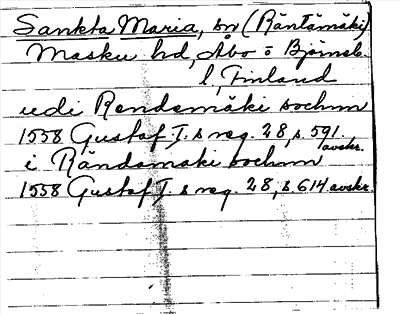 Sankta Maria, sn (Räntämäki)
Masku hd, Åbo o Björneb.
l, Finland
udi Rendemäki sochnn
1558 Gustaf I. s reg. 28, s. 591. avskr.
i Rändamaki sochnn
1558 Gustaf I. s reg. 28, s 614 avskr.